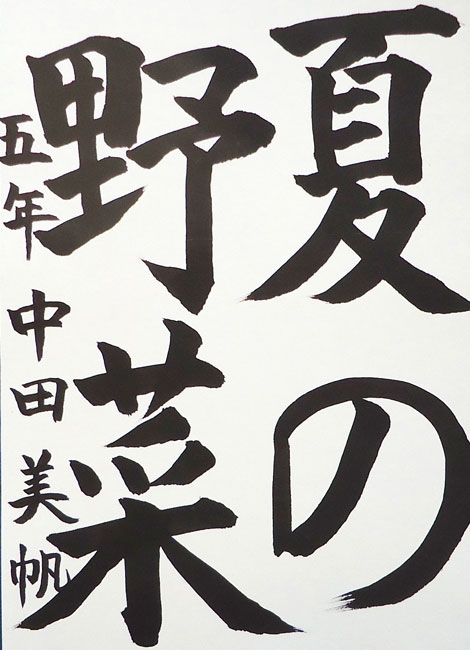 夏の
野菜
五年 中田美帆